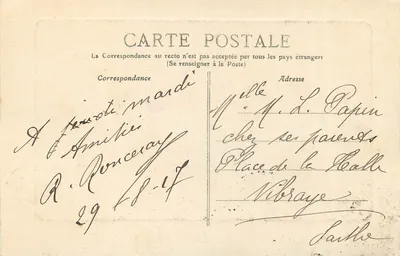 CARTE POSTALE
La Correspondance au recto n'est pas acceptée par tous les pays étrangers
(Se renseigner à la Poste)
Correspondance
A mardi
Amitiés
R. Ronceray
29-8-17
Adresse
Melle M. L. Papin
chez ses parents
Place de la Halle
Vibraye
Sarthe